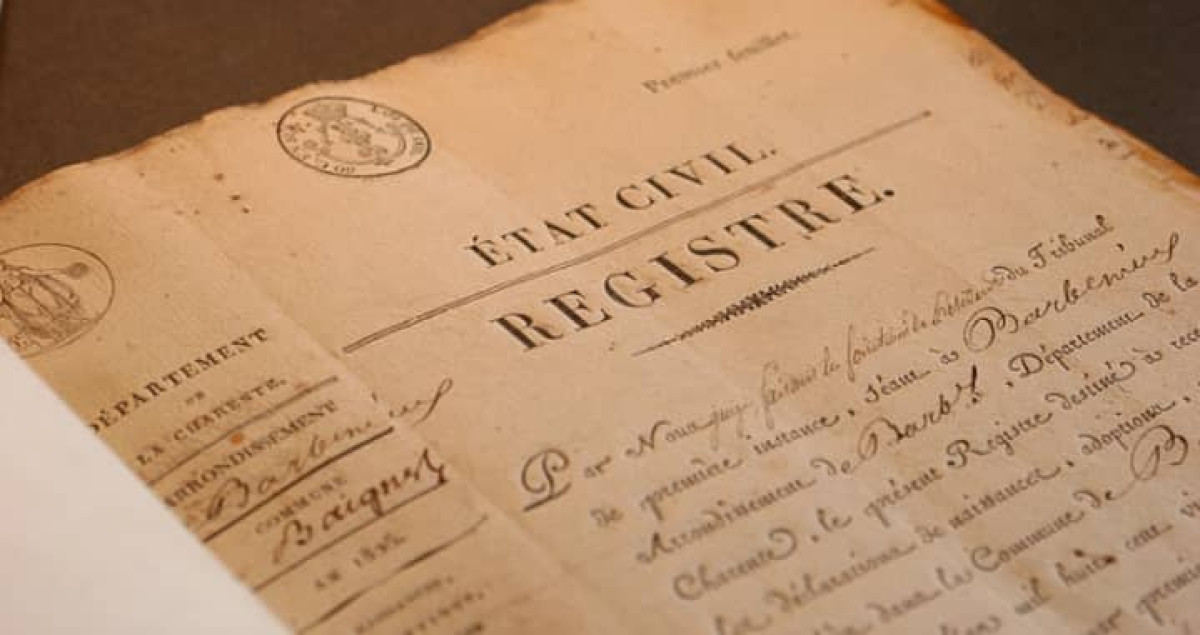 Premier feuillet.
ÉTAT CIVIL.
REGISTRE.
DÉPARTEMENT
DE
LA CHARENTE.
ARRONDISSEMENT
Barbezieux
COMMUNE
Baignes
AN
Par Nous juge faisant les fonctions de Président du Tribunal
de première instance, séant à Barbezieux
Arrondissement de Barbx, Département de la
Charente, le présent Registre destiné à rece
les déclarations de naissance, adoptions,
dans la Commune de B
mil huit cent vi
premier